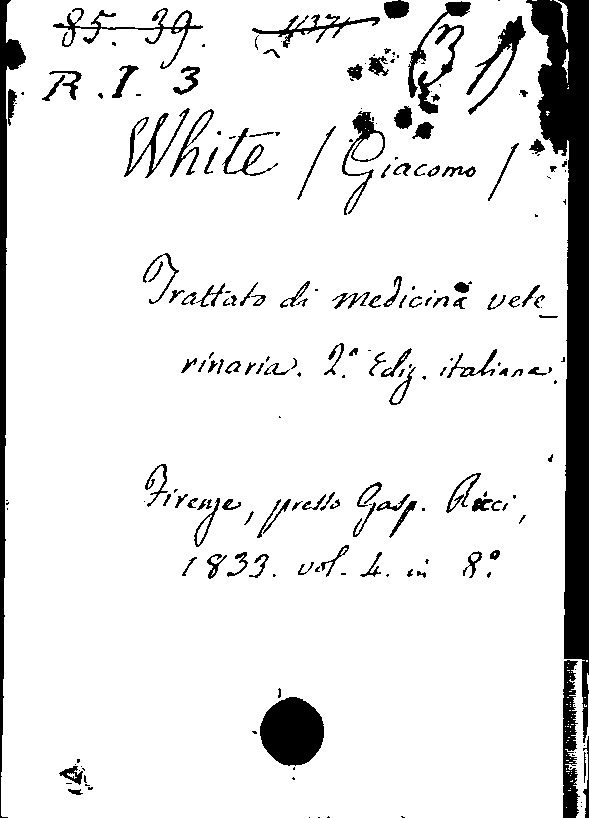 85. 39.
R.I. 3
White / Giacomo /
Trattato di medicina vete_
rinaria. 2.ª Ediz. italiana.
Firenze, presso Gasp. Ricci,
1833. vol. 4. in 8.º